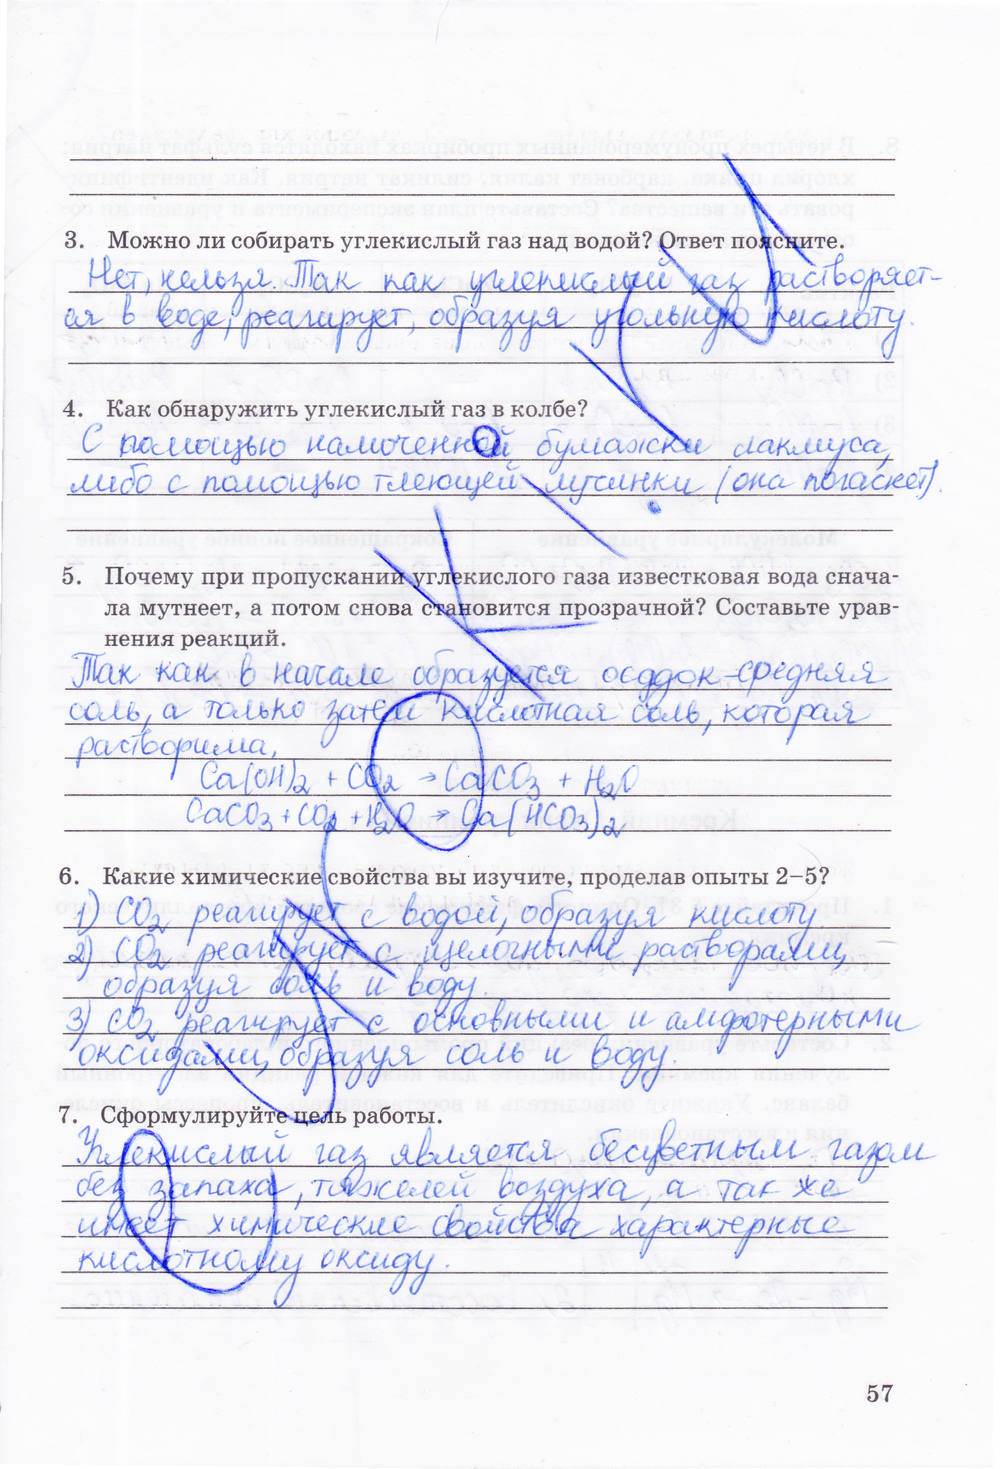 3. Можно ли собирать углекислый газ над водой? Ответ поясните.
Нет, нельзя. Так как углекислый газ растворяет-
ся в воде, реагирует, образуя угольную кислоту.
4. Как обнаружить углекислый газ в колбе?
С помощью намоченной бумажки лакмуса,
либо с помощью тлеющей лусинки (она погаснет).
5. Почему при пропускании углекислого газа известковая вода снача-
ла мутнеет, а потом снова становится прозрачной? Составьте урав-
нения реакций.
Так как в начале образуется осадок-средняя
соль, а только затем кислотная соль, которая
растворима.
Ca(OH)2 + CO2 → CaCO3 + H2O
CaCO3 + CO2 + H2O → Ca(HCO3)2
6. Какие химические свойства вы изучите, проделав опыты 2–5?
1) CO2 реагирует с водой, образуя кислоту
2) CO2 реагирует с щелочными растворами,
образуя соль и воду
3) CO2 реагирует с основными и амфотерными
оксидами, образуя соль и воду.
7. Сформулируйте цель работы.
Углекислый газ является бесцветным газом
без запаха, тяжелей воздуха, а так же
имеет химические свойства характерные
кислотному оксиду.
57